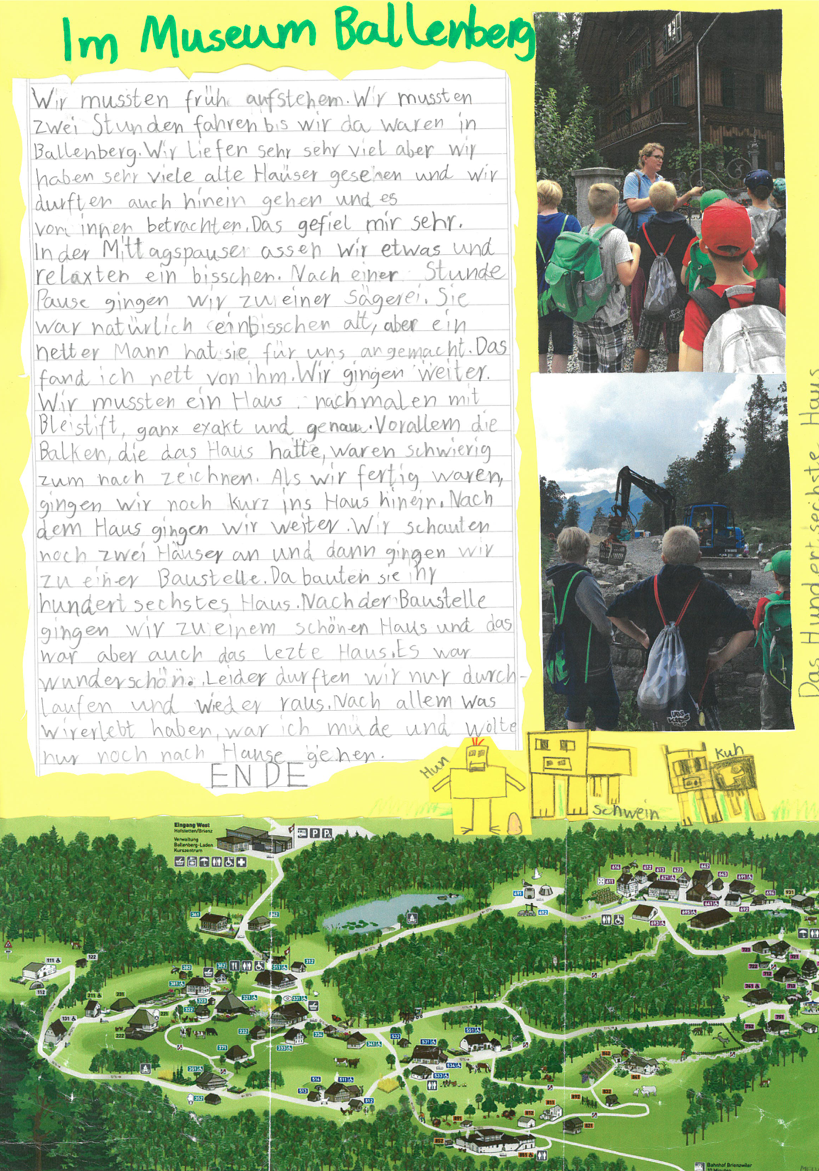 Im Museum Ballenberg
Wir mussten früh aufstehem. Wir mussten
zwei Stunden fahren bis wir da waren in
Ballenberg. Wir liefen sehr sehr viel aber wir
haben sehr viele alte Haüser gesehen und wir
durften auch hinein gehen und es
von innen betrachten. Das gefiel mir sehr.
In der Mittagspauser assen wir etwas und
relaxten ein bisschen. Nach einer Stunde
Pause gingen wir zu einer Sägerei. Sie
war natürlich einbisschen alt, aber ein
netter Mann hat sie für uns angemacht. Das
fand ich nett von ihm. Wir gingen weiter.
Wir mussten ein Haus nachmalen mit
Bleistift, ganx exakt und genau. Vorallem die
Balken, die das Haus hatte, waren schwierig
zum nach zeichnen. Als wir fertig waren,
gingen wir noch kurz ins Haus hinein. Nach
dem Haus gingen wir weiter. Wir schauten
noch zwei Häuser an und dann gingen wir
zu einer Baustelle. Da bauten sie ihr
hundert sechstes Haus. Nach der Baustelle
gingen wir zu einem schönen Haus und das
war aber auch das lezte Haus. Es war
wunderschön. Leider durften wir nur durch-
laufen und wieder raus. Nach allem was
wir erlebt haben, war ich müde und wolte
nur noch nach Hause gehen.
ENDE
Das Hundert sechste Haus
Hun
schwein
Kuh
Eingang West
Hofstetten/Brienz
Verwaltung
Ballenberg-Laden
Kurszentrum
Bahnhof Brienzwiler